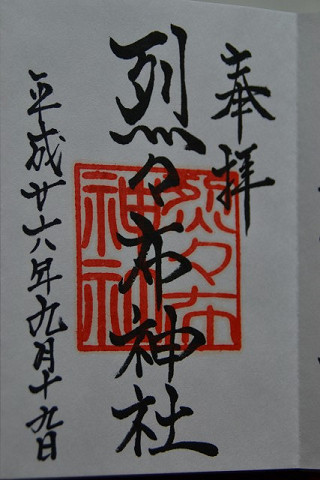 奉拝
烈々布神社
烈々布
神社
平成廿六年九月十九日